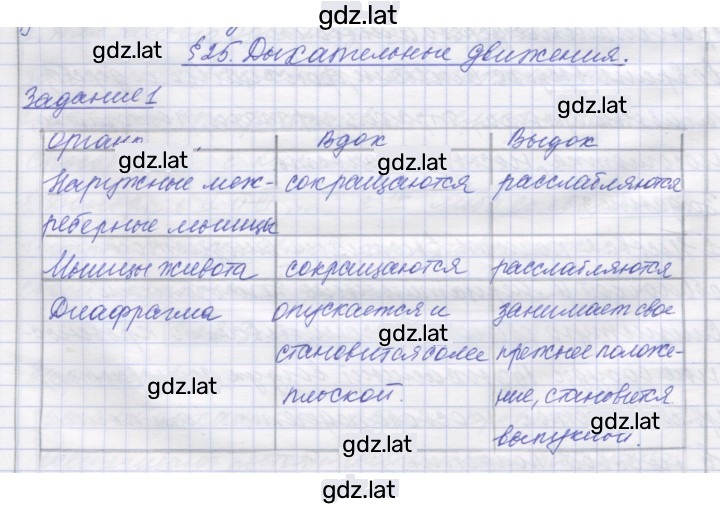 gdz.lat
gdz.lat
§ 25. Дыхательные движения.
Задание 1
gdz.lat
органы Вдох Выдох
gdz.lat gdz.lat
Наружные меж- сокращаются расслабляются
реберные мышцы
Мышцы живота сокращаются расслабляются
Диафрагма опускается и занимает свое
gdz.lat
становится более прежнее положе-
gdz.lat
плоской. ние, становится
gdz.lat
выпуклой.
gdz.lat
gdz.lat